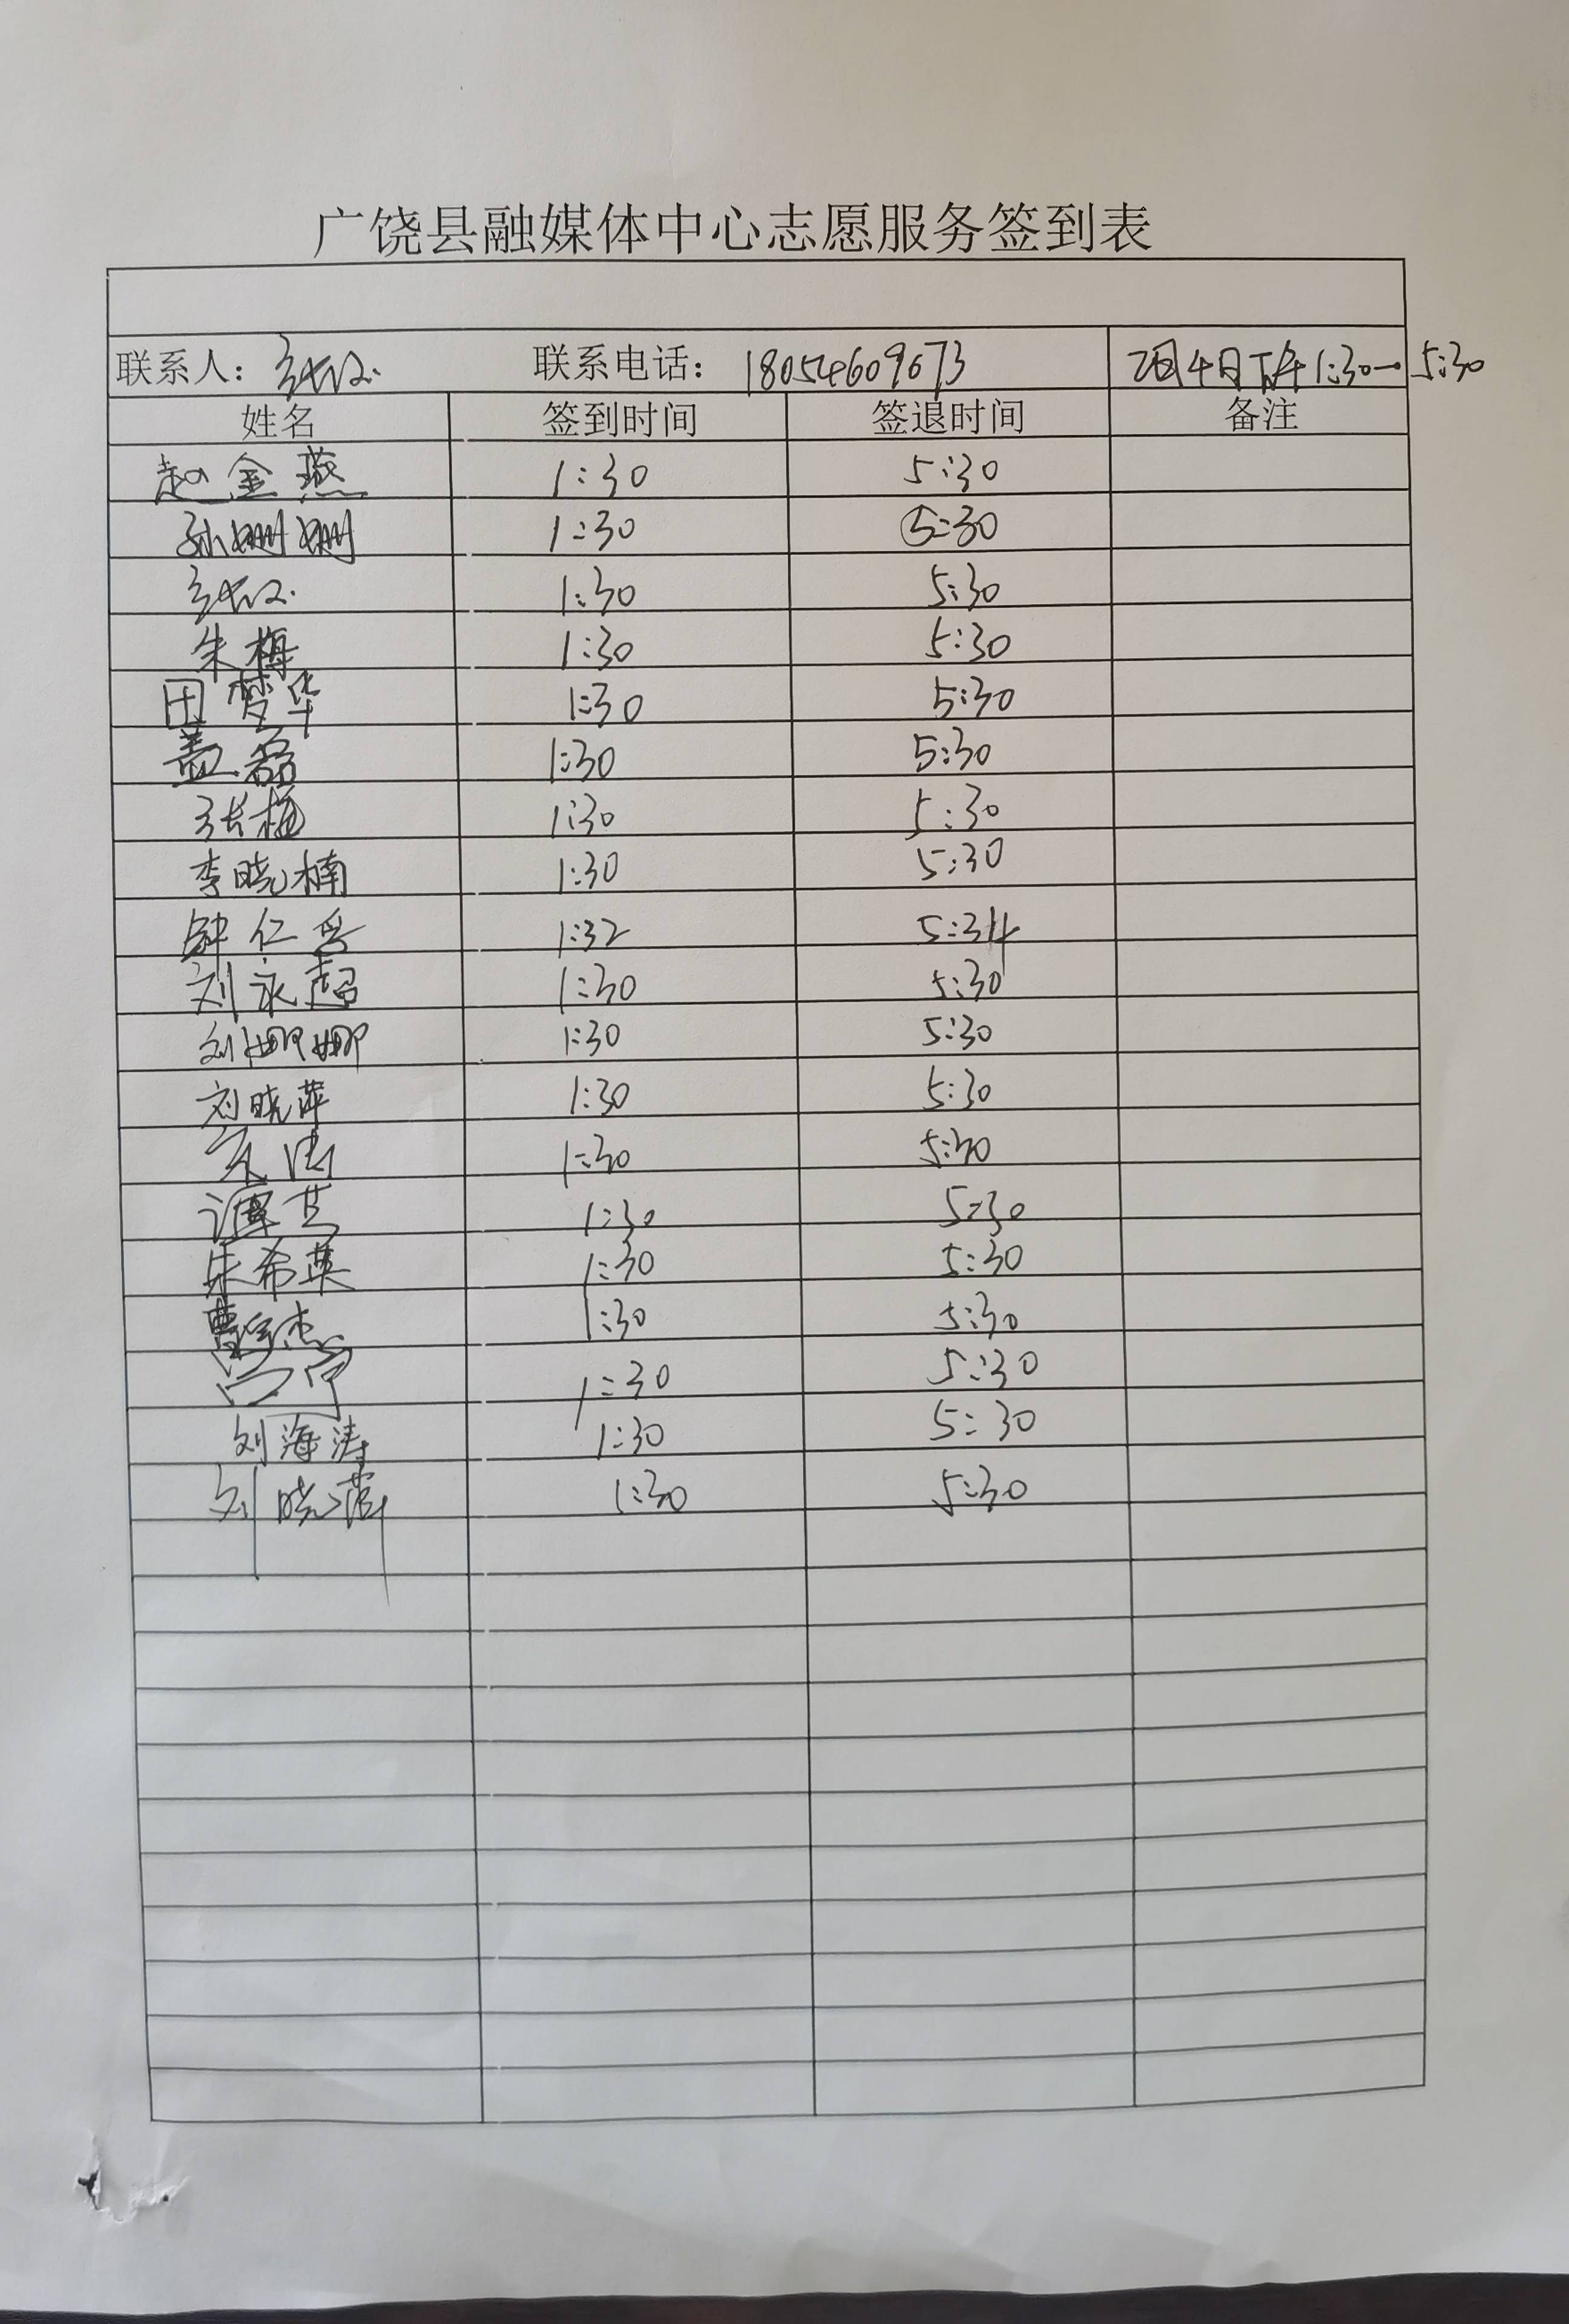 广饶县融媒体中心志愿服务签到表
联系人： 联系电话：18054609673 4日下午1:30—5:30
姓名 签到时间 签退时间 备注
赵金燕 1:30 5:30
孙姗姗 1:30 5:30
1:30 5:30
朱梅 1:30 5:30
田梦华 1:30 5:30
盖磊 1:30 5:30
张梅 1:30 5:30
李晓楠 1:30 5:30
钟仁 1:32 5:34
刘永超 1:30 5:30
刘娜娜 1:30 5:30
刘晓萍 1:30 5:30
1:30 5:30
谭 1:30 5:30
朱希英 1:30 5:30
曹 杰 1:30 5:30
1:30 5:30
刘海涛 1:30 5:30
刘晓 1:30 5:30